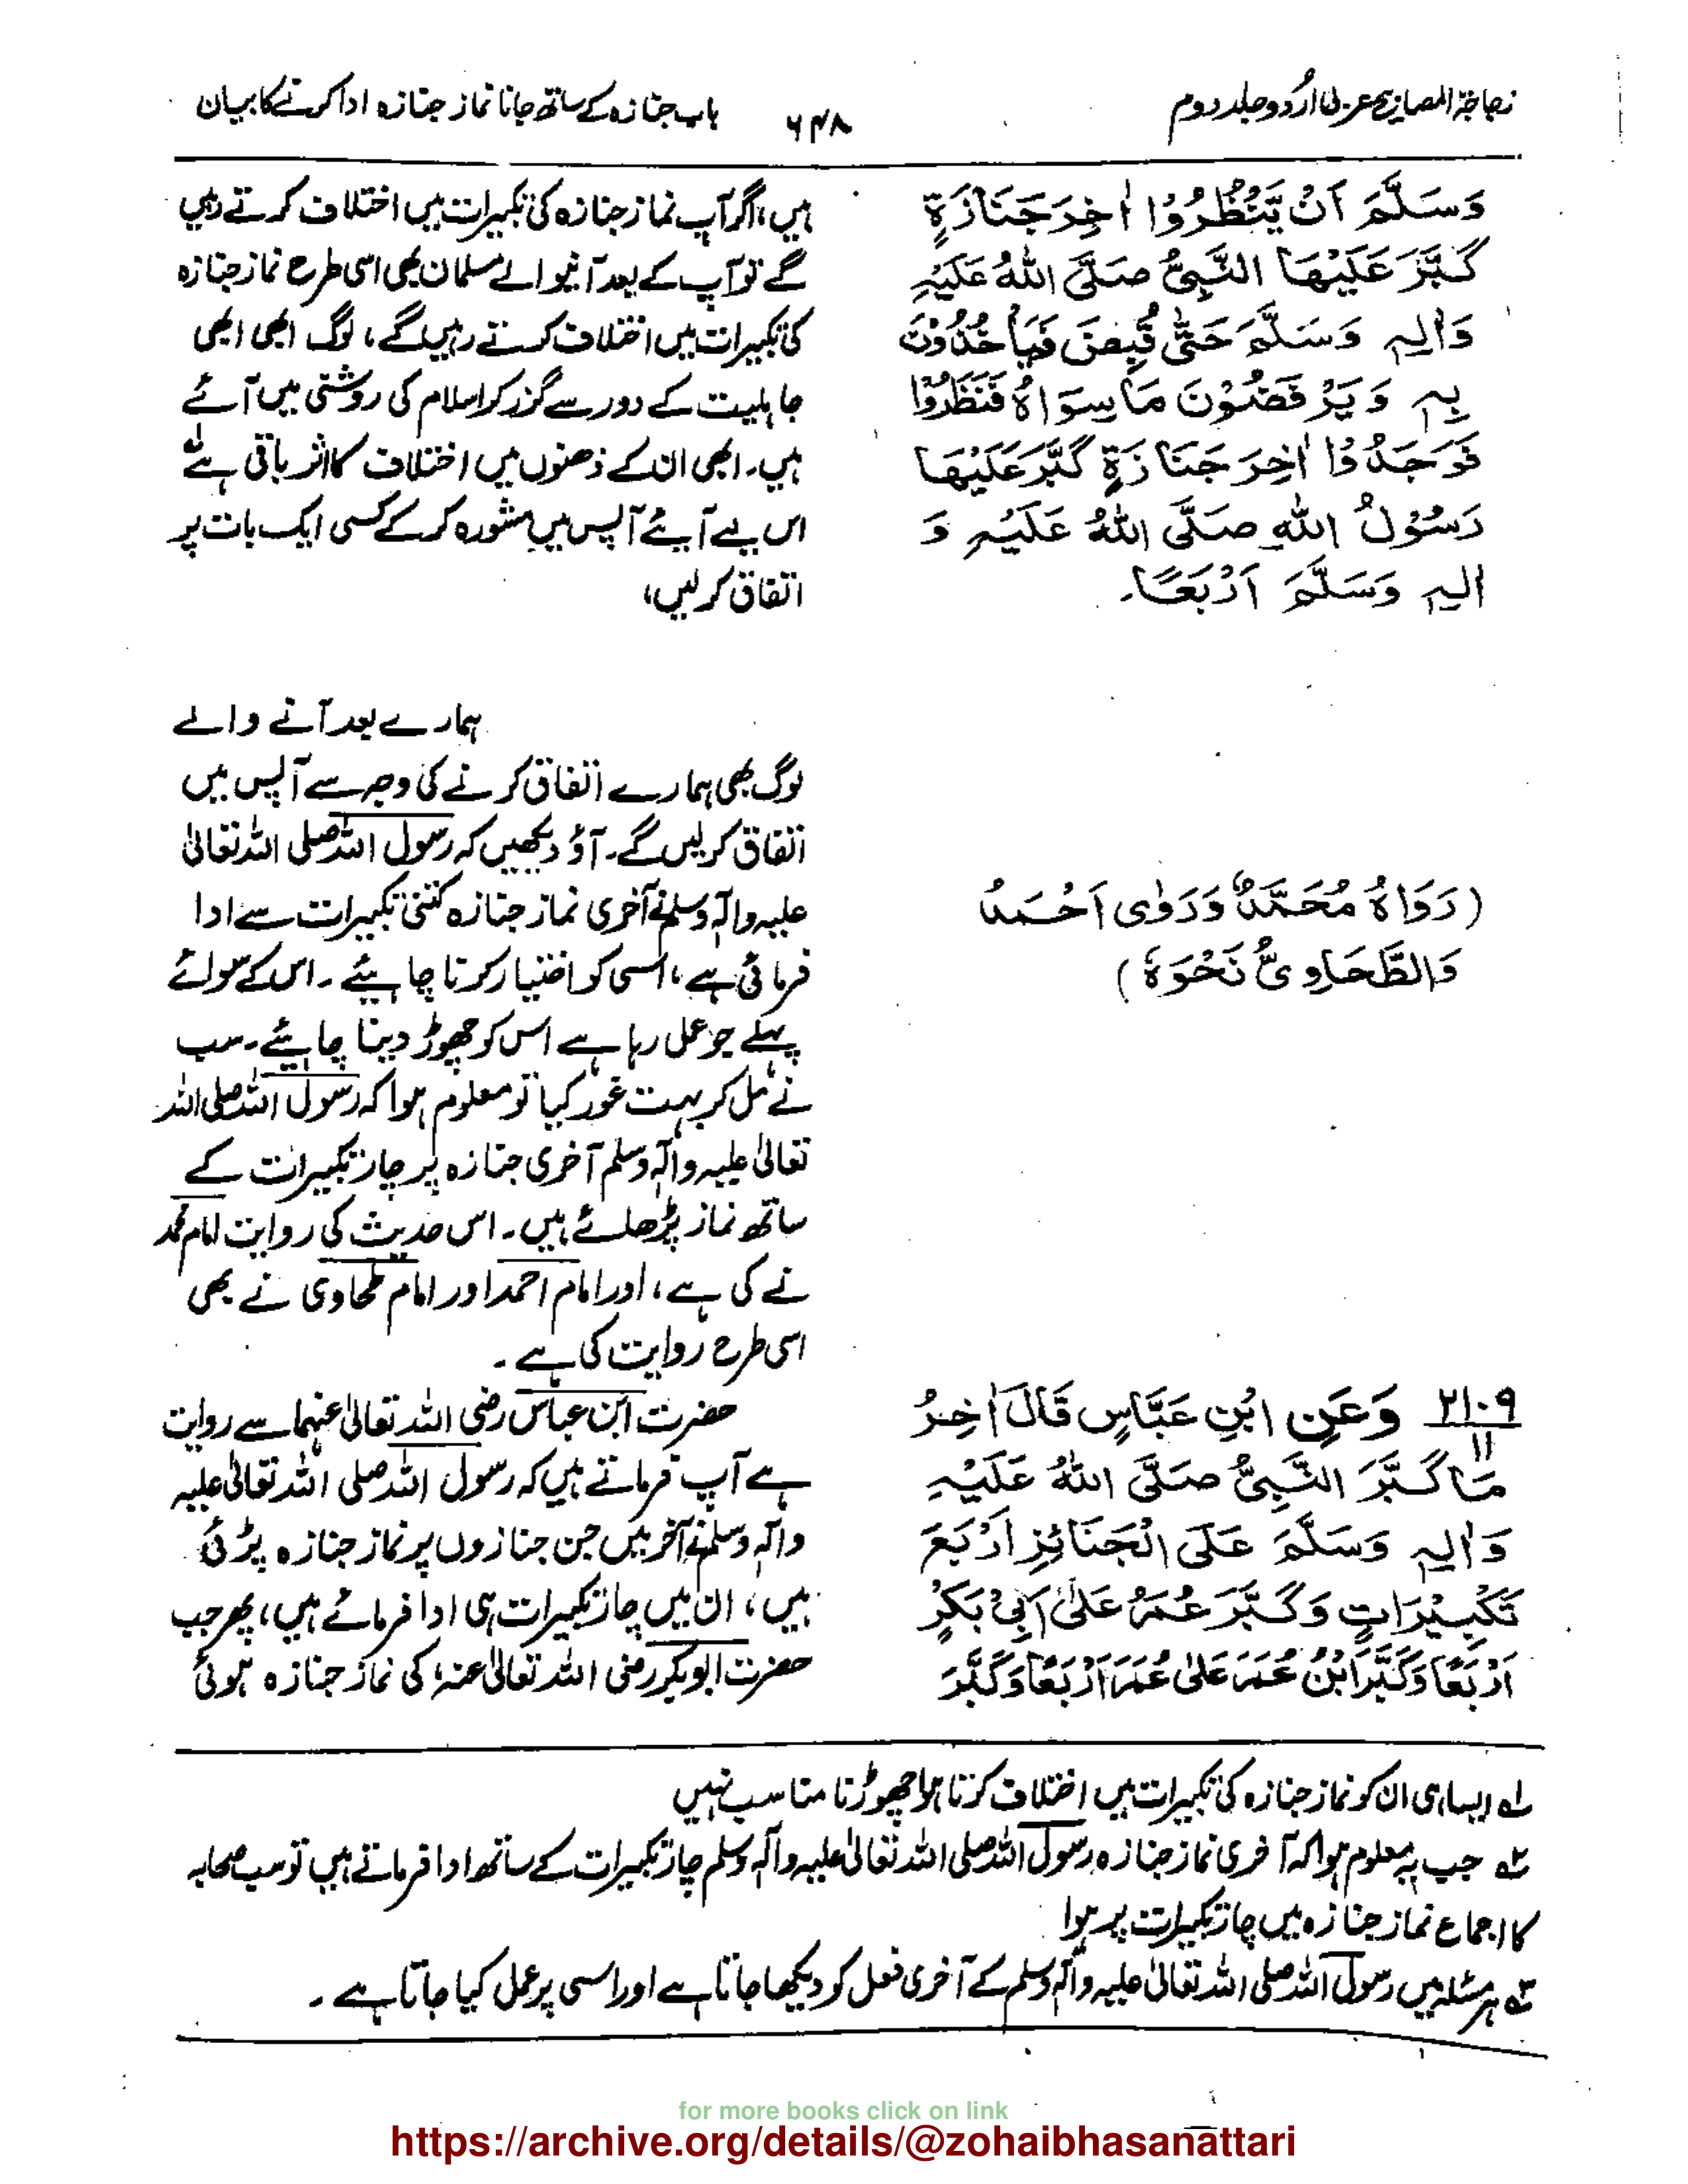 زجاجۃ المصابیح عربی اُردو جلد دوم
۶۴۸
باب جنازہ کے ساتھ جانا نماز جنازہ ادا کرنے کا بیان
وَسَلَّمَ اَنْ يَّنْظُرُوْا اٰخِرَ جَنَازَةٍ
كَبَّرَ عَلَيْهَا النَّبِيُّ صَلَّى اللّٰهُ عَلَيْهِ
وَاٰلِهٖ وَسَلَّمَ حَتّٰى قُبِضَ فَيَأْخُذُوْنَ
بِهٖ وَيَرْفَضُوْنَ مَا سِوَاهُ فَنَظَرُوْا
فَوَجَدُوْا اٰخِرَ جَنَازَةٍ كَبَّرَ عَلَيْهَا
رَسُوْلُ اللّٰهِ صَلَّى اللّٰهُ عَلَيْهِ وَ
اٰلِهٖ وَسَلَّمَ اَرْبَعًا۔
(رَوَاهُ مُحَمَّدٌ وَرَوٰى اَحْمَدُ
وَالطَّحَاوِيُّ نَحْوَهٗ)
۲۱۰۹
۱۱
وَعَنِ ابْنِ عَبَّاسٍ قَالَ اٰخِرُ
مَا كَبَّرَ النَّبِيُّ صَلَّى اللّٰهُ عَلَيْهِ
وَاٰلِهٖ وَسَلَّمَ عَلَى الْجَنَائِزِ اَرْبَعَ
تَكْبِيْرَاتٍ وَكَبَّرَ عُمَرُ عَلٰى اَبِيْ بَكْرٍ
اَرْبَعًا وَكَبَّرَ ابْنُ عُمَرَ عَلٰى عُمَرَ اَرْبَعًا وَكَبَّرَ
ہیں، اگر آپ نماز جنازہ کی تکبیرات میں اختلاف کرتے رہیں
گے تو آپ کے بعد آنیوالے مسلمان بھی اسی طرح نماز جنازہ
کی تکبیرات میں اختلاف کرتے رہیں گے، لوگ ابھی ابھی
جاہلیت کے دور سے گزر کر اسلام کی روشنی میں آئے
ہیں۔ ابھی ان کے ذہنوں میں اختلاف کا اثر باقی ہے
اس لیے آیئے آپس میں مشورہ کر کے کسی ایک بات پر
اتفاق کر لیں،
ہمارے بعد آنے والے
لوگ بھی ہمارے اتفاق کرنے کی وجہ سے آپس میں
اتفاق کریں گے۔ آؤ دیکھیں کہ رسول اللہ صلی اللہ تعالیٰ
علیہ وآلہ وسلم نے آخری نماز جنازہ کتنی تکبیرات سے ادا
فرمائی ہے، اسی کو اختیار کرنا چاہیئے۔ اس کے سوائے
پہلے جو عمل رہا ہے اس کو چھوڑ دینا چاہیئے۔ سب
نے مل کر بہت غور کیا تو معلوم ہوا کہ رسول اللہ صلی اللہ
تعالیٰ علیہ وآلہ وسلم آخری جنازہ پر چار تکبیرات کے
ساتھ نماز پڑھائے ہیں۔ اس حدیث کی روایت امام محمد
نے کی ہے، اور امام احمد اور امام طحاوی نے بھی
اسی طرح روایت کی ہے۔
حضرت ابن عباس رضی اللہ تعالیٰ عنہما سے روایت
ہے آپ فرماتے ہیں کہ رسول اللہ صلی اللہ تعالیٰ علیہ
وآلہ وسلم نے آخر میں جن جنازوں پر نماز جنازہ پڑھی
ہیں، ان میں چار تکبیرات ہی ادا فرمائے ہیں، پھر جب
حضرت ابوبکر رضی اللہ تعالیٰ عنہ، کی نماز جنازہ ہوئی
۱؎ ایسا ہی ان کو نماز جنازہ کی تکبیرات میں اختلاف کرتا ہوا چھوڑنا مناسب نہیں
۲؎ جب یہ معلوم ہوا کہ آخری نماز جنازہ رسول اللہ صلی اللہ تعالیٰ علیہ وآلہ وسلم چار تکبیرات کے ساتھ ادا فرمائے ہیں تو سب صحابہ
کا اجماع نماز جنازہ میں چار تکبیرات پر ہوا
۳؎ ہر مسئلہ میں رسول اللہ صلی اللہ تعالیٰ علیہ وآلہ وسلم کے آخری فعل کو دیکھا جاتا ہے اور اسی پر عمل کیا جاتا ہے۔
for more books click on link
https://archive.org/details/@zohaibhasanattari